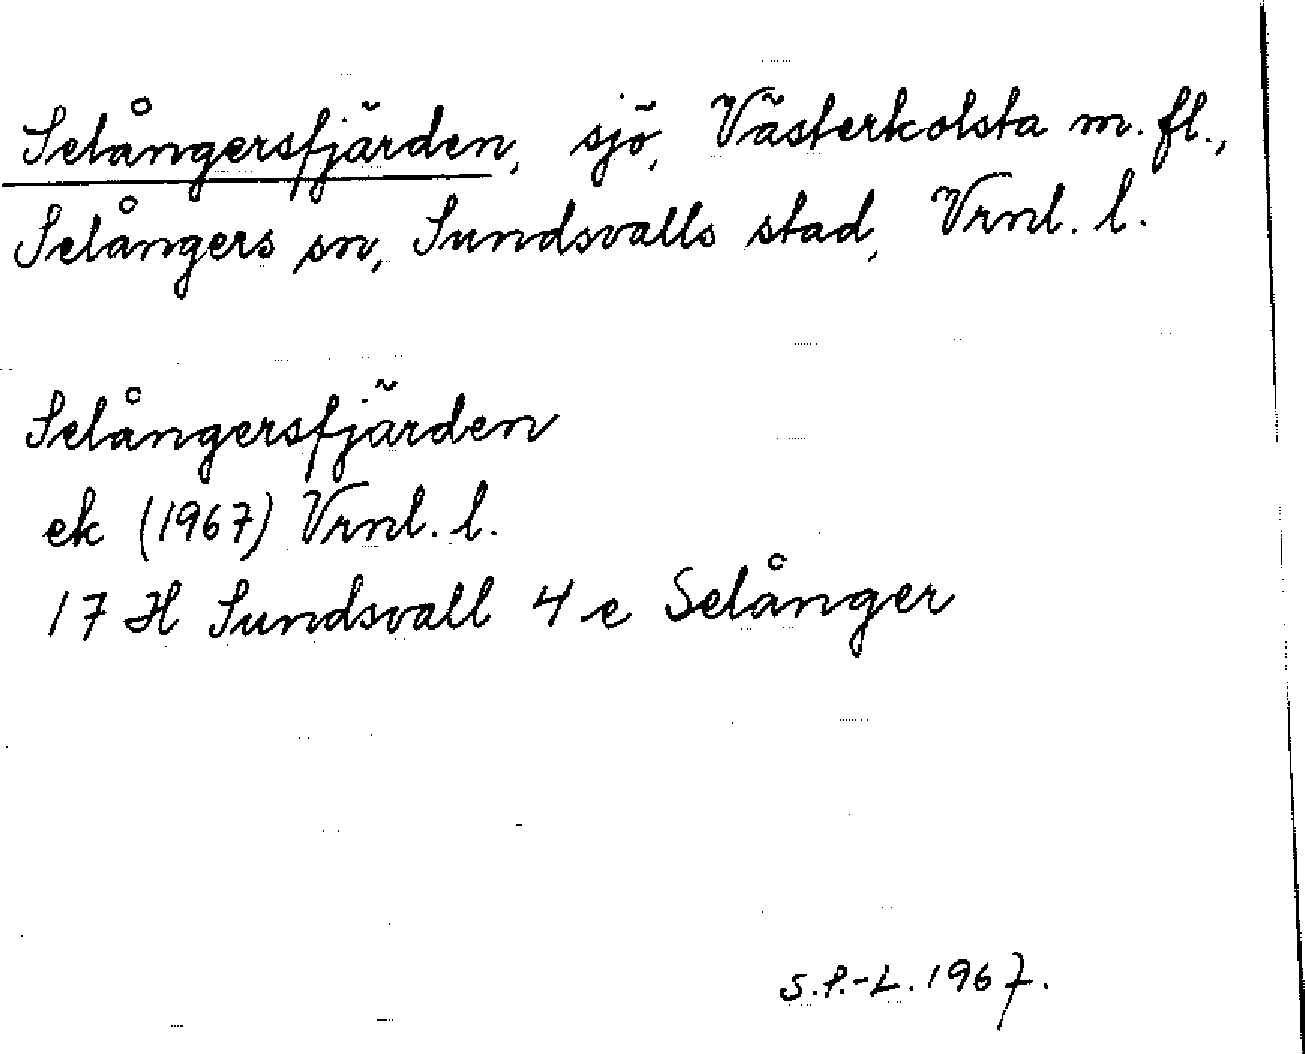 Selångersfjärden, sjö, Västerkolsta m.fl.,
Selångers sn, Sundsvalls stad, Vrnl. l.
Selångersfjärden
ek (1967) Vrnl. l.
17 H Sundsvall 4 e Selånger
S.P.-L. 1967.